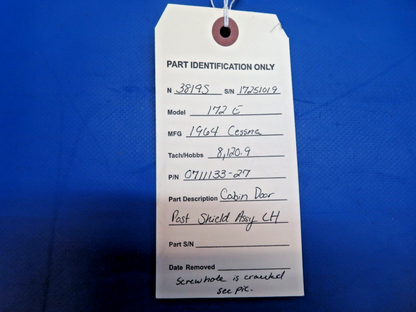 PART IDENTIFICATION ONLY
N 3819S S/N 17251019
Model 172 E
MFG 1964 Cessna
Tach/Hobbs 8,120.9
P/N 0711133-27
Part Description Cabin Door
Post Shield Assy LH
Part S/N
Date Removed
Screwhole is cracked
see pic.